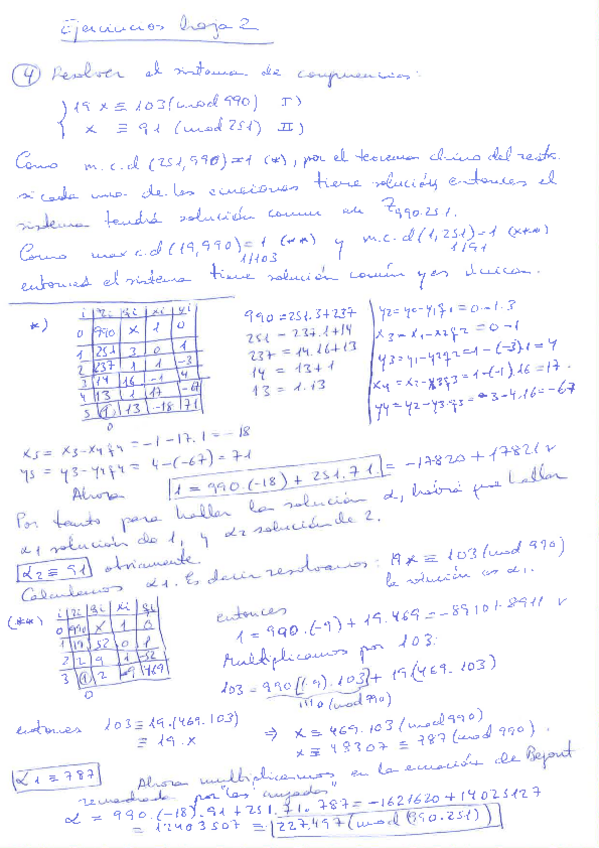 Ejercicios hoja 2
④ Resolver el sistema de congruencias:
19 x ≡ 103 (mod 990) I)
x ≡ 91 (mod 251) II)
Como m.c.d (251,990)=1 (*), por el teorema chino del resto
si cada una de las ecuaciones tiene solución, entonces el
sistema tendrá solución común en Z990·251.
Como max c.d (19,990)=1 (**) y m.c.d (1,251)=1 (***)
1|103 1|91
entonces el sistema tiene solución común y es única.
*) i ri qi xi yi
0 990 x 1 0
1 251 3 0 1
2 237 1 1 -3
3 14 16 -1 4
4 13 1 17 -67
5 1 13 -18 71
0
990=251.3+237
251=237.1+14
237=14.16+13
14=13+1
13=1.13
y2=y0-y1q1=0-1.3
x3=x1-x2q2=0-1
y3=y1-y2q2=1-(-3)1=4
x4=x2-x3q3=1-(-1).16=17.
y4=y2-y3q3=-3-4.16=-67
x5=x3-x4q4=-1-17.1=-18
y5=y3-y4q4=4-(-67)=71
Ahora 1=990.(-18)+251.71 =-17820+17821 v
Por tanto para hallar la solución α, habrá que hallar
α1 solución de 1, y α2 solución de 2.
α2≡91 obviamente.
Calculamos α1. Es decir resolvamos: 19x≡103(mod 990)
la solución es α1.
(**) i ri qi xi yi
0 990 x 1 0
1 19 52 0 1
2 2 9 1 -52
3 1 2 -9 469
0
entonces
1=990.(-9)+19.469=-8910+8911 v
Multiplicamos por 103:
103=990[(-9).103]+19(469.103)
(mod 990)
entonces 103≡19.(469.103)
≡19.x
⇒ x≡469.103(mod 990)
x≡48307≡787(mod 990).
α1≡787
Ahora multiplicamos en la ecuación de Bezout
recuadrada por "los cruzados"
α=990.(-18).91+251.71.787=-1621620+14025127
=12403507≡227.497(mod(990.251))